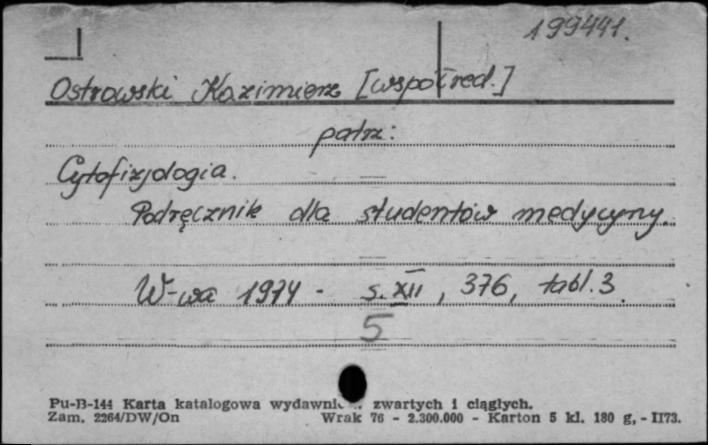 199441.
Ostrowski Kazimierz [współred.]
patrz:
Cytofizjologia.
Podręcznik dla studentów medycyny.
W-wa 1974 - s. XII, 376, tabl. 3
5
Pu-B-144 Karta katalogowa zwartych i ciągłych.
Zam. 2264/DW/On Wrak 76 - 2.300.000 - Karton 5 kl. 180 g, - II73.